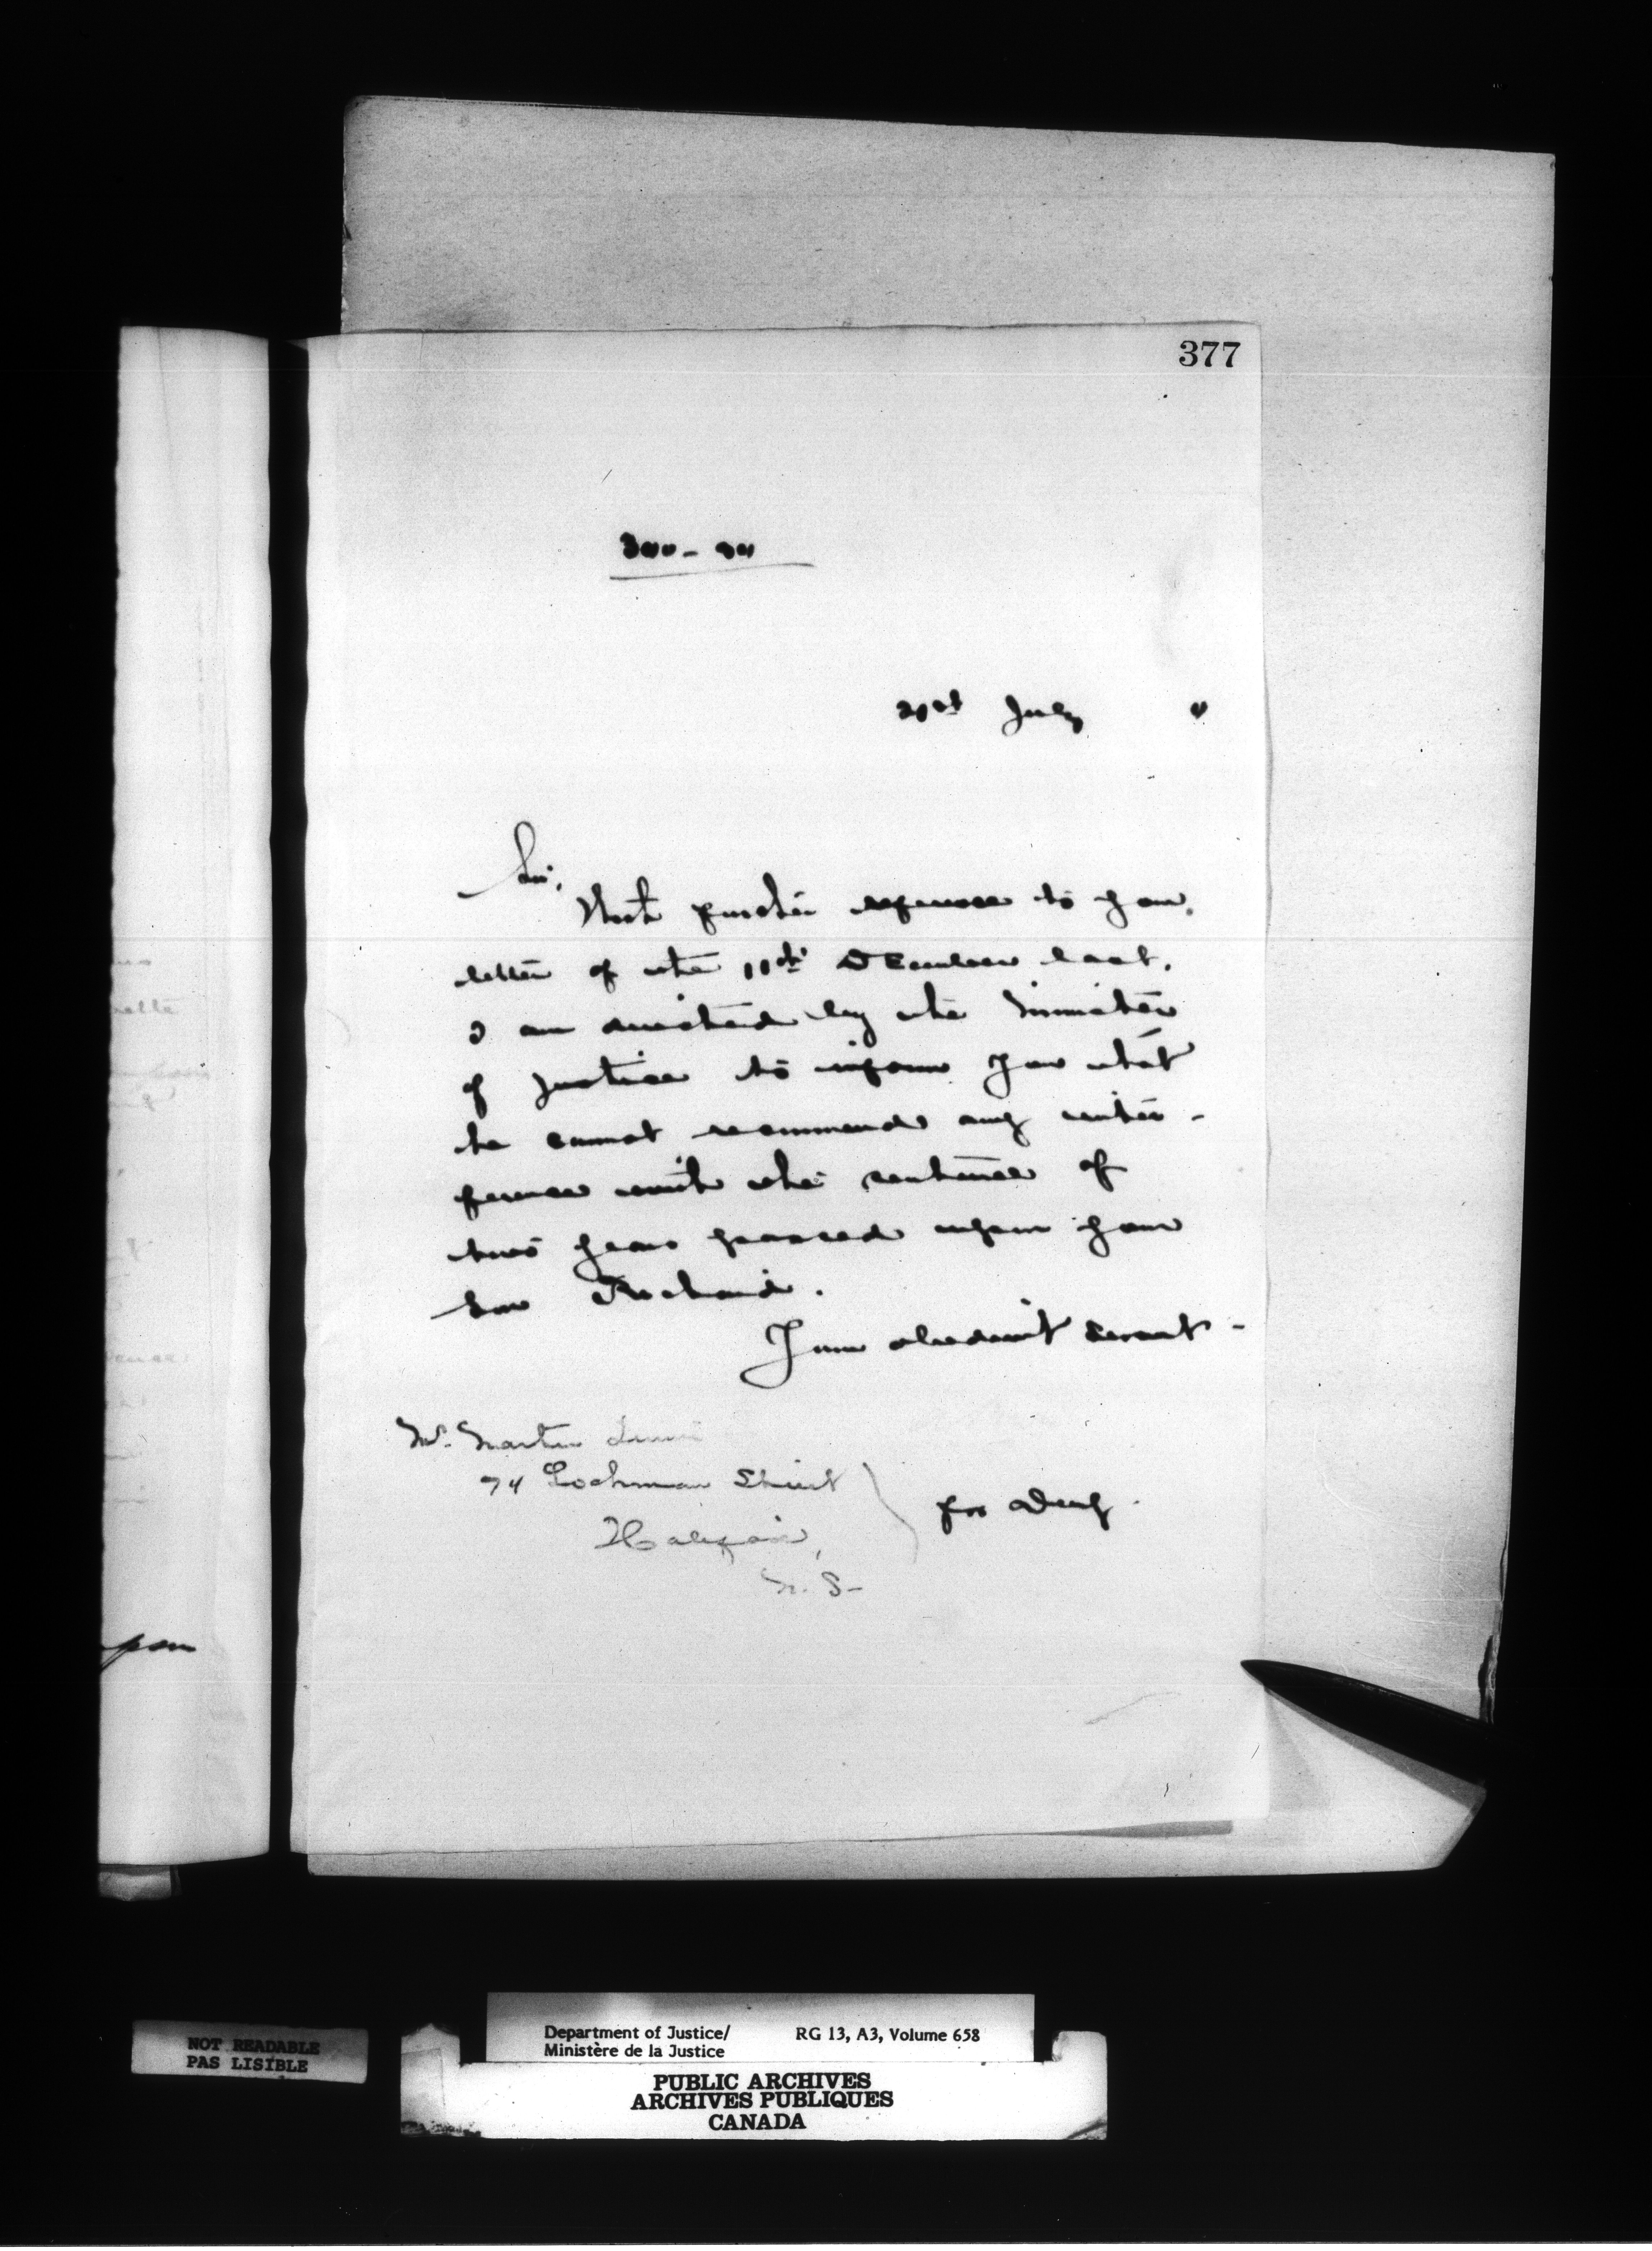 377
21st July
Sir,
With further reference to your
letter of the 11th December last,
I am directed by the Minister
of Justice to inform you that
he cannot recommend any inter-
ference with the sentence of
two years passed upon your
son Richard.
Your obedient servant-
Mr. Martin
74 Lockman Street
Halifax,
N. S-
for Dep
upon
NOT READABLE
PAS LISIBLE
Department of Justice/ RG 13, A3, Volume 658
Ministère de la Justice
PUBLIC ARCHIVES
ARCHIVES PUBLIQUES
CANADA